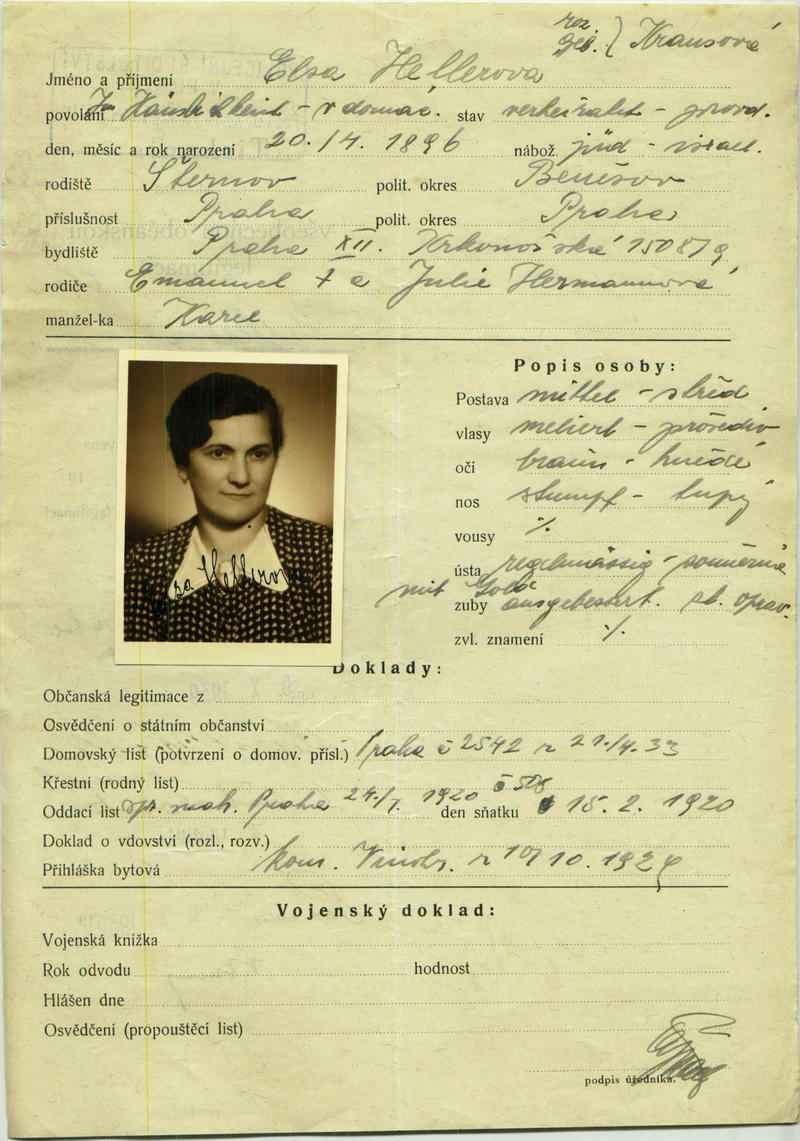 roz. geb. } Krausová
Jméno a příjmení Elsa Hellerova
povolání Im Haushalt - v domác. stav verheiratet - provd.
den, měsíc a rok narození 20./4. 1896 nábož. jüd - israel.
rodiště Šternov polit. okres Benešov
příslušnost Praha polit. okres Praha
bydliště Praha XII. Krkonošská 1508/9
rodiče Emanuel † a Julie Hermannová
manžel-ka Karel
Popis osoby:
Postava mittel - střed.
vlasy meliert - prošediv.
oči braun - hnědé
nos stumpf - tupý
vousy ./.
ústa regelmässig - souměrné
zuby mit Gold ausgebessert. zl. oprav.
zvl. znamení ./.
Elsa Hellerova
Doklady:
Občanská legitimace z
Osvědčení o státním občanství
Domovský list (potvrzení o domov. přísl.) Praha č 2542 z 21./4. 33
Křestní (rodný list)
Oddací list Praha 24./7. 1920 č 508 den sňatku 15. 2. 1920
Doklad o vdovství (rozl., rozv.)
Přihláška bytová kom. Vinohr. z 10/10. 1929
Vojenský doklad:
Vojenská knížka
Rok odvodu hodnost
Hlášen dne
Osvědčení (propouštěcí list)
podpis úředníka.